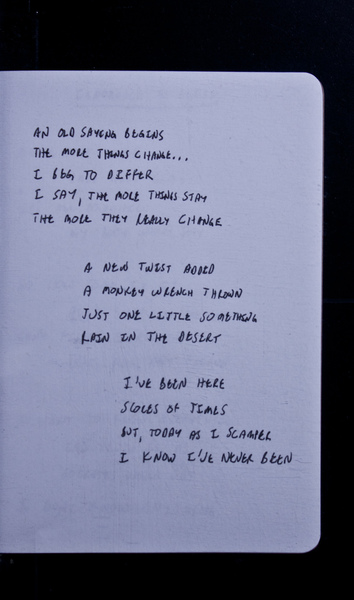 AN OLD SAYING BEGINS
THE MORE THINGS CHANGE...
I BEG TO DIFFER
I SAY, THE MORE THINGS STAY
THE MORE THEY REALLY CHANGE
A NEW TWIST ADDED
A MONKEY WRENCH THROWN
JUST ONE LITTLE SOMETHING
RAIN IN THE DESERT
I'VE BEEN HERE
SCORES OF TIMES
BUT, TODAY AS I SCAMPER
I KNOW I'VE NEVER BEEN